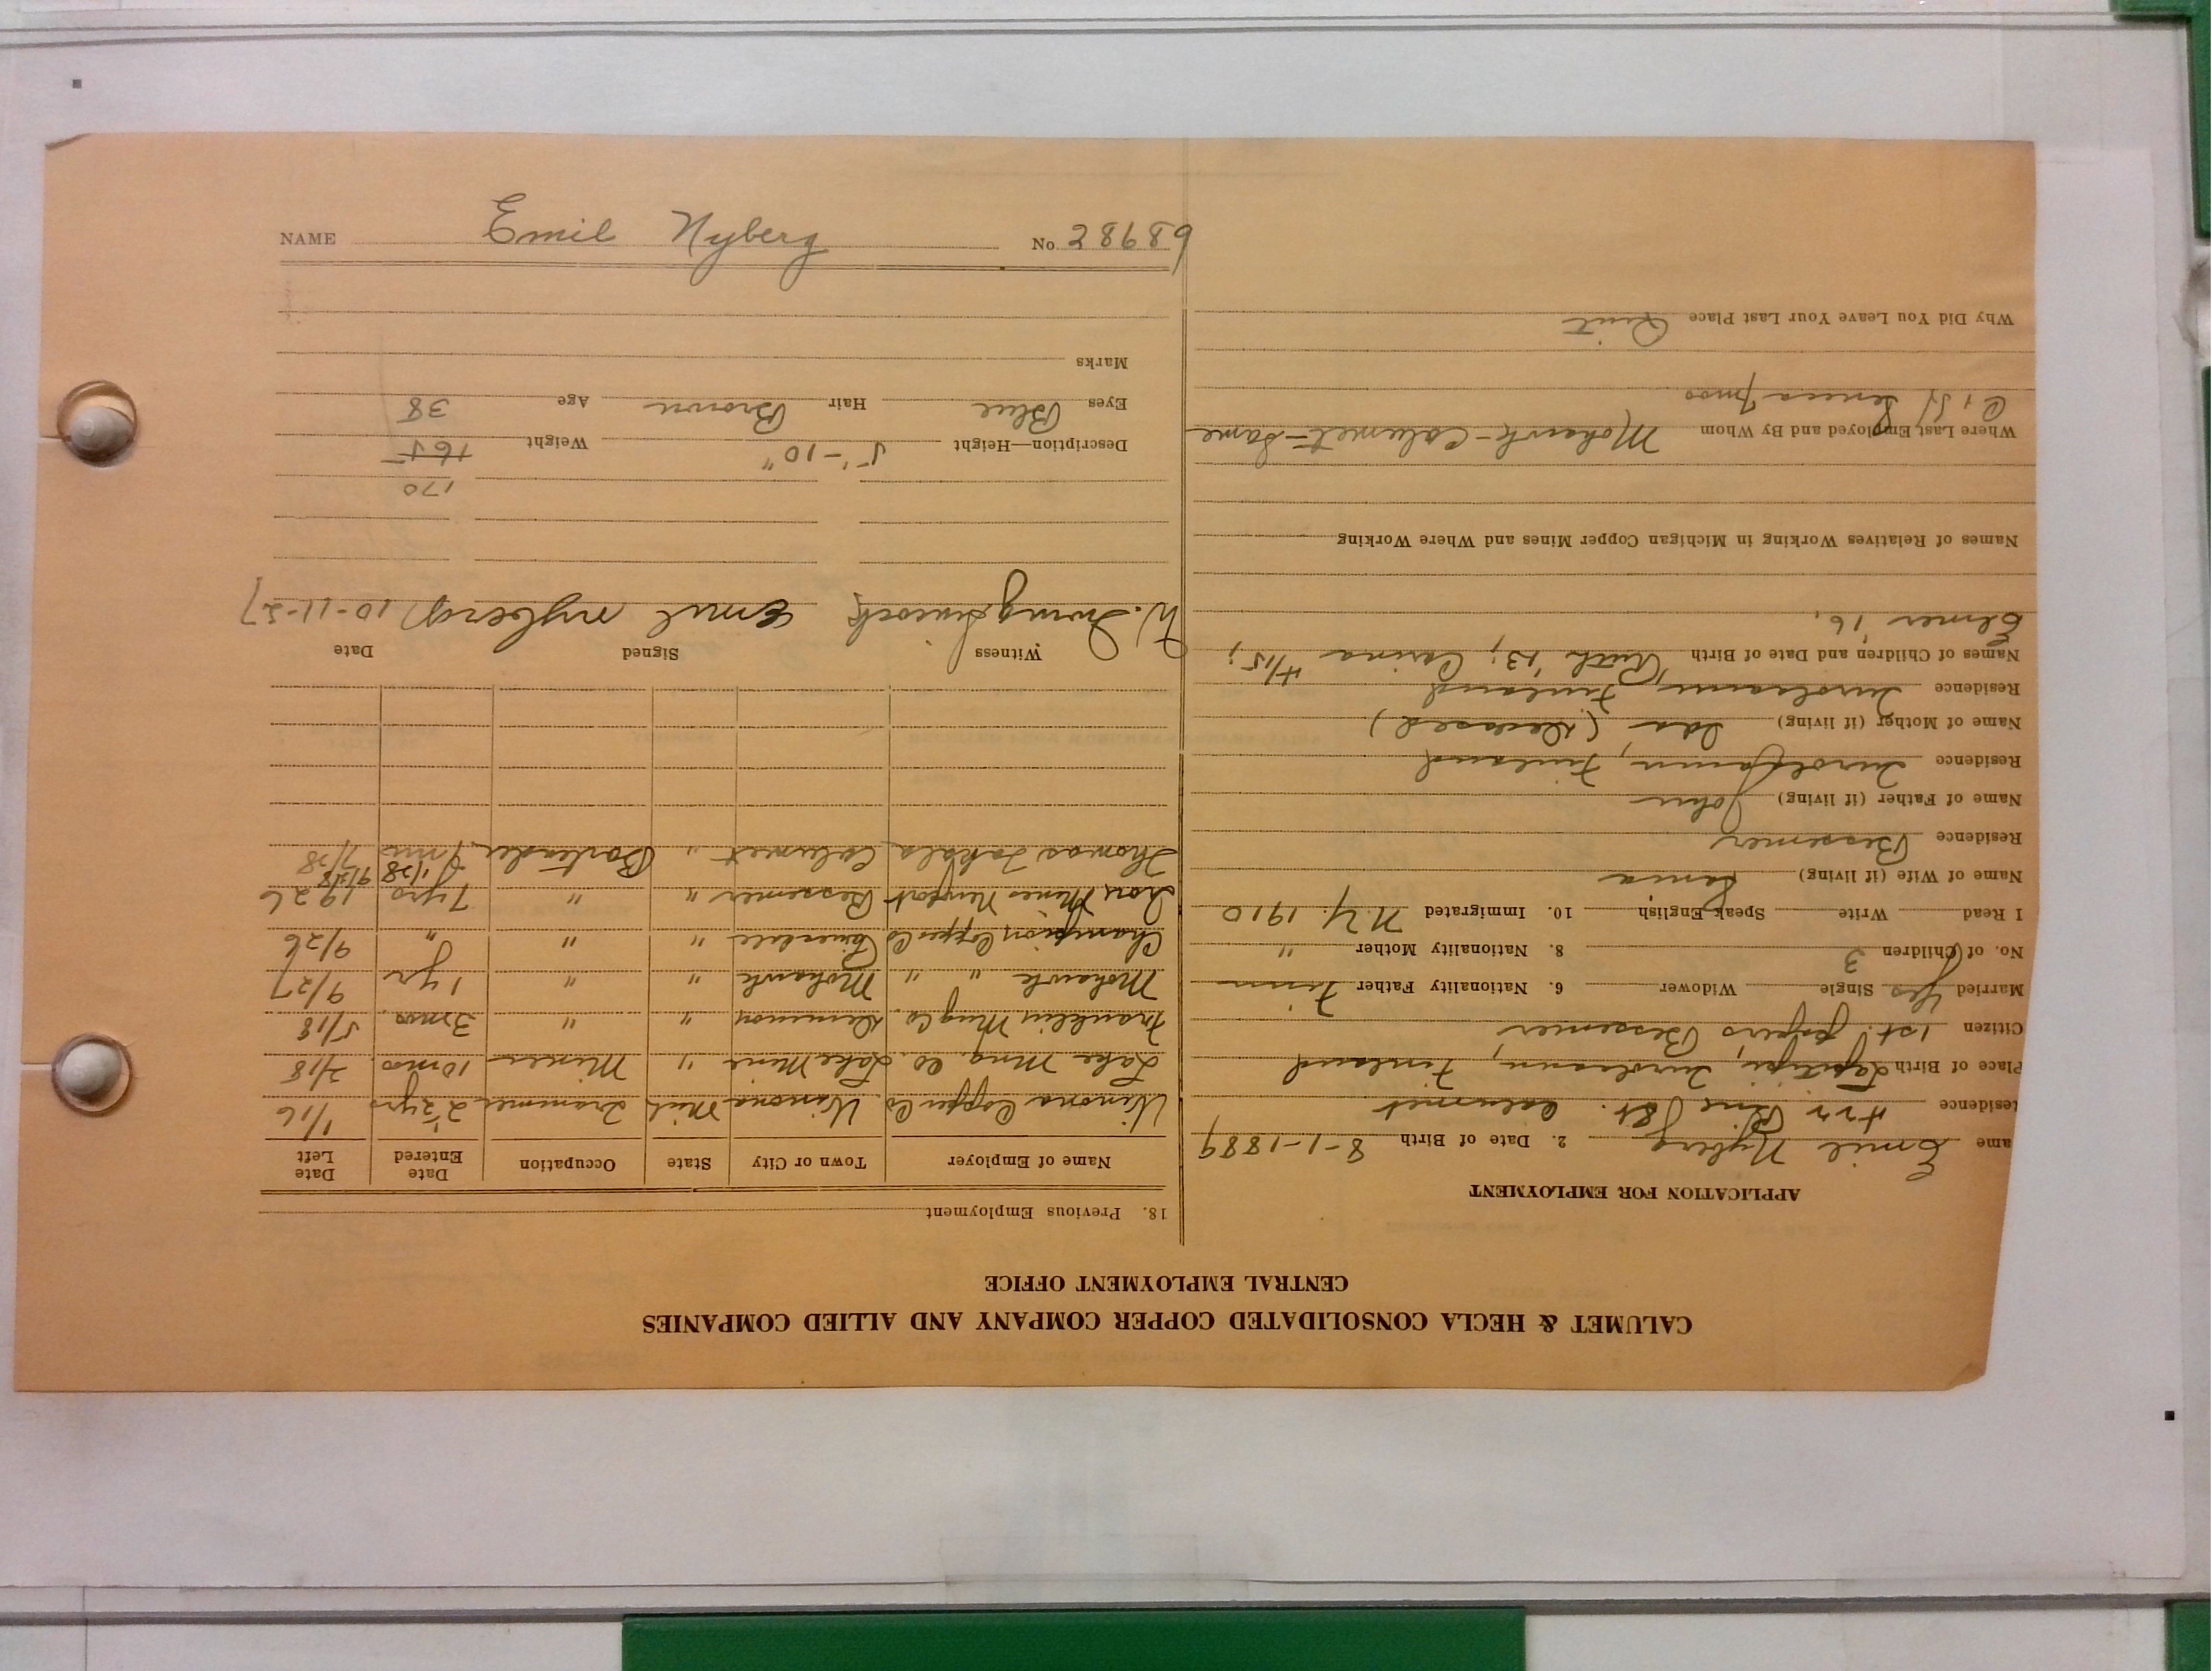 CALUMET & HECLA CONSOLIDATED COPPER COMPANY AND ALLIED COMPANIES
CENTRAL EMPLOYMENT OFFICE
APPLICATION FOR EMPLOYMENT
ame Emil Nyberg 2. Date of Birth 8-1-1889
esidence Pine St. Calumet
Place of Birth Finland
Citizen 1st papers Bessemer
Married Yes Single Widower 6. Nationality Father Finn
No. of Children 3 8. Nationality Mother "
I Read Write Speak English 10. Immigrated N.Y. 1910
Name of Wife (if living)
Residence Bessemer
Name of Father (if living) John
Residence Finland
Name of Mother (if living) (Deceased)
Residence Finland
Names of Children and Date of Birth Ruth '13; 4/15;
Elmer '16.
Names of Relatives Working in Michigan Copper Mines and Where Working
Where Last Employed and By Whom Mohawk - Calumet - Same
Seneca 7 mos
Why Did You Leave Your Last Place Quit
18. Previous Employment
Name of Employer Town or City State Occupation Date Entered Date Left
Winona Copper Co Winona Mich Trammer 2 1/2 yrs 1/16
Lake Mng. Co. Lake Mine " Miner 10 mos. 2/18
Franklin Mng Co. Demmon " " 3 mos. 5/18
Mohawk " " Mohawk " " 1 yr 9/27
Champion Copper Co Painesdale " " " 9/26
Iron Mines Newport Bessemer " " 7 yrs 1926
Thomas Calumet " Bartender 1/28 7/28
Witness Signed Date
W. Emil nyberg 10-11-27
170
Description—Height 5'-10" Weight 165
Eyes Blue Hair Brown Age 38
Marks
NAME Emil Nyberg No 28989